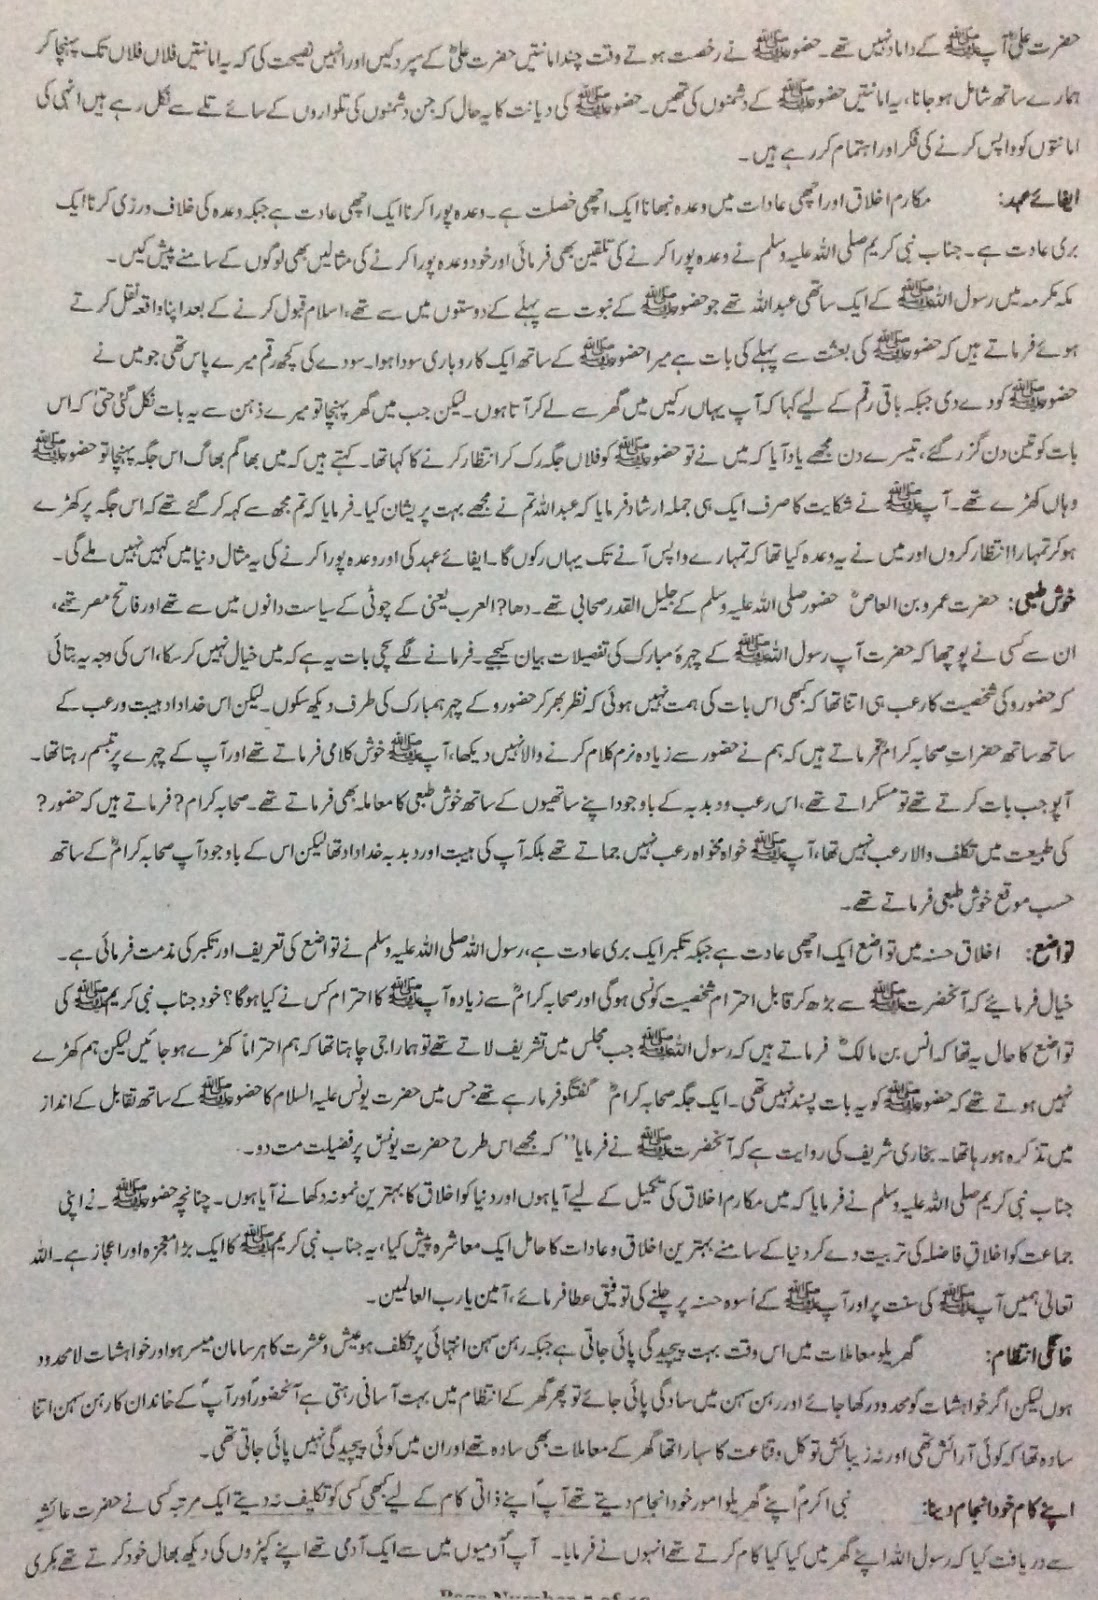 حضرت علیؓ آپ ﷺ کے داماد نہیں تھے۔ حضور ﷺ نے رخصت ہوتے وقت چند امانتیں حضرت علیؓ کے سپرد کیں اور انہیں نصیحت کی کہ یہ امانتیں فلاں فلاں تک پہنچا کر
ہمارے ساتھ شامل ہو جانا، یہ امانتیں حضور ﷺ کے دشمنوں کی تھیں۔ حضور ﷺ کی دیانت کا یہ حال کہ جن دشمنوں کی تلواروں کے سائے تلے سے نکل رہے ہیں انہی کی
امانتوں کو واپس کرنے کی فکر اور اہتمام کر رہے ہیں۔
ایفائے عہد: مکارم اخلاق اور اچھی عادات میں وعدہ نبھانا ایک اچھی خصلت ہے۔ وعدہ پورا کرنا ایک اچھی عادت ہے جبکہ وعدہ کی خلاف ورزی کرنا ایک
بری عادت ہے۔ جناب نبی کریم صلی اللہ علیہ وسلم نے وعدہ پورا کرنے کی تلقین بھی فرمائی اور خود وعدہ پورا کرنے کی مثالیں بھی لوگوں کے سامنے پیش کیں۔
مکہ مکرمہ میں رسول اللہ ﷺ کے ایک ساتھی عبداللہ تھے جو حضور ﷺ کے نبوت سے پہلے کے دوستوں میں سے تھے، اسلام قبول کرنے کے بعد اپنا واقعہ نقل کرتے
ہوئے فرماتے ہیں کہ حضور ﷺ کی بعثت سے پہلے کی بات ہے میرا حضور ﷺ کے ساتھ ایک کاروباری سودا ہوا۔ سودے کی کچھ رقم میرے پاس تھی جو میں نے
حضور ﷺ کو دے دی جبکہ باقی رقم کے لیے کہا کہ آپ یہاں رکیں میں گھر سے لے کر آتا ہوں۔ لیکن جب میں گھر پہنچا تو میرے ذہن سے یہ بات نکل گئی حتیٰ کہ اس
بات کو تین دن گزر گئے، تیسرے دن مجھے یاد آیا کہ میں نے تو حضور ﷺ کو فلاں جگہ رک کر انتظار کرنے کا کہا تھا۔ کہتے ہیں کہ میں بھاگم بھاگ اس جگہ پہنچا تو حضور ﷺ
وہاں کھڑے تھے۔ آپ ﷺ نے شکایت کا صرف ایک ہی جملہ ارشاد فرمایا کہ عبداللہ تم نے مجھے بہت پریشان کیا۔ فرمایا کہ تم مجھ سے کہہ کر گئے تھے کہ اس جگہ پر کھڑے
ہو کر تمہارا انتظار کروں اور میں نے یہ وعدہ کیا تھا کہ تمہارے واپس آنے تک یہاں رکوں گا۔ ایفائے عہد کی اور وعدہ پورا کرنے کی یہ مثال دنیا میں کہیں نہیں ملے گی۔
خوش طبعی: حضرت عمرو بن العاصؓ حضور صلی اللہ علیہ وسلم کے جلیل القدر صحابی تھے۔ دھا? العرب یعنی کے چوٹی کے سیاست دانوں میں سے تھے اور فاتح مصر تھے،
ان سے کسی نے پوچھا کہ حضرت آپ رسول اللہ ﷺ کے چہرۂ مبارک کی تفصیلات بیان کیجیے۔ فرمانے لگے سچی بات یہ ہے کہ میں خیال نہیں کر سکا، اس کی وجہ یہ بتائی
کہ حضور و کی شخصیت کا رعب ہی اتنا تھا کہ کبھی اس بات کی ہمت نہیں ہوئی کہ نظر بھر کر حضور و کے چہر ہمبارک کی طرف دیکھ سکوں۔ لیکن اس خداداد ہیبت و رعب کے
ساتھ ساتھ حضرات صحابہ کرامؓ فرماتے ہیں کہ ہم نے حضور سے زیادہ نرم کلام کرنے والا نہیں دیکھا، آپ ﷺ خوش کلامی فرماتے تھے اور آپ کے چہرے پر تبسم رہتا تھا۔
آپو جب بات کرتے تھے تو مسکراتے تھے، اس رعب و دبدبہ کے باوجود اپنے ساتھیوں کے ساتھ خوش طبعی کا معاملہ بھی فرماتے تھے۔ صحابہ کرام? فرماتے ہیں کہ حضور?
کی طبیعت میں تکلف والا رعب نہیں تھا، آپ ﷺ خواہ مخواہ رعب نہیں جماتے تھے بلکہ آپ کی ہیبت اور دبدبہ خداداد تھا لیکن اس کے باوجود آپ صحابہ کرامؓ کے ساتھ
حسب موقع خوش طبعی فرماتے تھے۔
تواضع: اخلاق حسنہ میں تواضع ایک اچھی عادت ہے جبکہ تکبر ایک بری عادت ہے، رسول اللہ صلی اللہ علیہ وسلم نے تواضع کی تعریف اور تکبر کی مذمت فرمائی ہے۔
خیال فرمایئے کہ آنحضرت ﷺ سے بڑھ کر قابل احترام شخصیت کونسی ہوگی اور صحابہ کرامؓ سے زیادہ آپ ﷺ کا احترام کس نے کیا ہوگا؟ خود جناب نبی کریم ﷺ کی
تواضع کا حال یہ تھا کہ انس بن مالکؓ فرماتے ہیں کہ رسول اللہ ﷺ جب مجلس میں تشریف لاتے تھے تو ہمارا جی چاہتا تھا کہ ہم احتراماً کھڑے ہو جائیں لیکن ہم کھڑے
نہیں ہوتے تھے کہ حضور ﷺ کو یہ بات پسند نہیں تھی۔ ایک جگہ صحابہ کرامؓ گفتگو فرما رہے تھے جس میں حضرت یونس علیہ السلام کا حضور ﷺ کے ساتھ تقابل کے انداز
میں تذکرہ ہو رہا تھا۔ بخاری شریف کی روایت ہے کہ آنحضرت ﷺ نے فرمایا’’ کہ مجھے اس طرح حضرت یونسؑ پر فضیلت مت دو۔
جناب نبی کریم صلی اللہ علیہ وسلم نے فرمایا کہ میں مکارم اخلاق کی تکمیل کے لیے آیا ہوں اور دنیا کو اخلاق کا بہترین نمونہ دکھانے آیا ہوں۔ چنانچہ حضور ﷺ نے اپنی
جماعت کو اخلاقِ فاضلہ کی تربیت دے کر دنیا کے سامنے بہترین اخلاق و عادات کا حامل ایک معاشرہ پیش کیا، یہ جناب نبی کریم ﷺ کا ایک بڑا معجزہ اور اعجاز ہے۔ اللہ
تعالیٰ ہمیں آپ ﷺ کی سنت پر اور آپ ﷺ کے اُسوہ حسنہ پر چلنے کی توفیق عطا فرمائے، آمین یا رب العالمین۔
خانگی انتظام: گھریلو معاملات میں اس وقت بہت پیچیدگی پائی جاتی ہے جبکہ رہن سہن انتہائی پر تکلف ہو عیش و عشرت کا ہر سامان میسر ہو اور خواہشات لامحدود
ہوں لیکن اگر خواہشات کو محدود رکھا جائے اور رہن سہن میں سادگی پائی جائے تو پھر گھر کے انتظام میں بہت آسانی رہتی ہے آنحضورؐ اور آپؐ کے خاندان کا رہن سہن اتنا
سادہ تھا کہ کوئی آرائش تھی اور نہ زیبائش توکل و قناعت کا سہارا تھا گھر کے معاملات بھی سادہ تھے اور ان میں کوئی پیچیدگی نہیں پائی جاتی تھی۔
اپنے کام خود انجام دینا: نبی اکرمؐ اپنے گھریلو امور خود انجام دیتے تھے آپؐ اپنے ذاتی کام کے لیے کبھی کسی کو تکلیف نہ دیتے ایک مرتبہ کسی نے حضرت عائشہؓ
سے دریافت کیا کہ رسول اللہ اپنے گھر میں کیا کیا کام کرتے تھے انہوں نے فرمایا۔ آپؐ آدمیوں میں سے ایک آدمی تھے اپنے کپڑوں کی دیکھ بھال خود کرتے تھے بکری